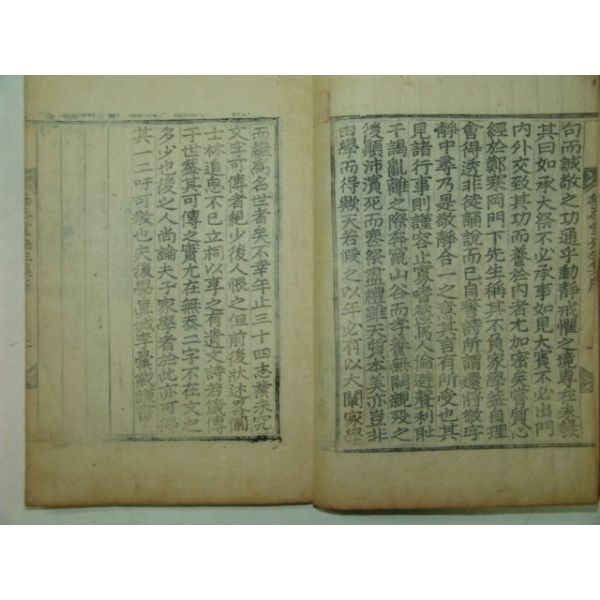 句而誠敬之功通乎動靜戒懼之境專在未發
其曰如承大祭不必承事如見大賓不必出門
內外交致其功而養於內者尤加密矣嘗質心
經於鄭寒岡門下先生稱其不負家學益自理
會得透非徒誦說而已其善詩所謂還將敬字
靜中尋乃是敬靜合一之意其言有所受也其
見諸行事則謹容止寡嗜慾篤人倫避聲利恥
干謁亂離之際奔竄山谷而孝養無闕親歿之
後顚沛濱死而喪祭盡禮雖天質本美亦豈非
由學而得歟天若假之以年必有以大闡家學
而繼爲名世者矣不幸年止三十四志業未究
文字可傳者絕少後人恨之但前後狀述署備
士林追思不已立祠以享之有遺文詩若箴傳
于世蓋其可傳之實尤在無忝二字不在文之
多少也後之人尚論夫子家學者於此亦可得
其一二吁可敬也夫後學眞城李彙載謹書